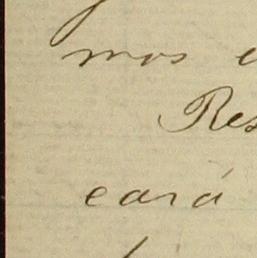 mos e
Res
cará